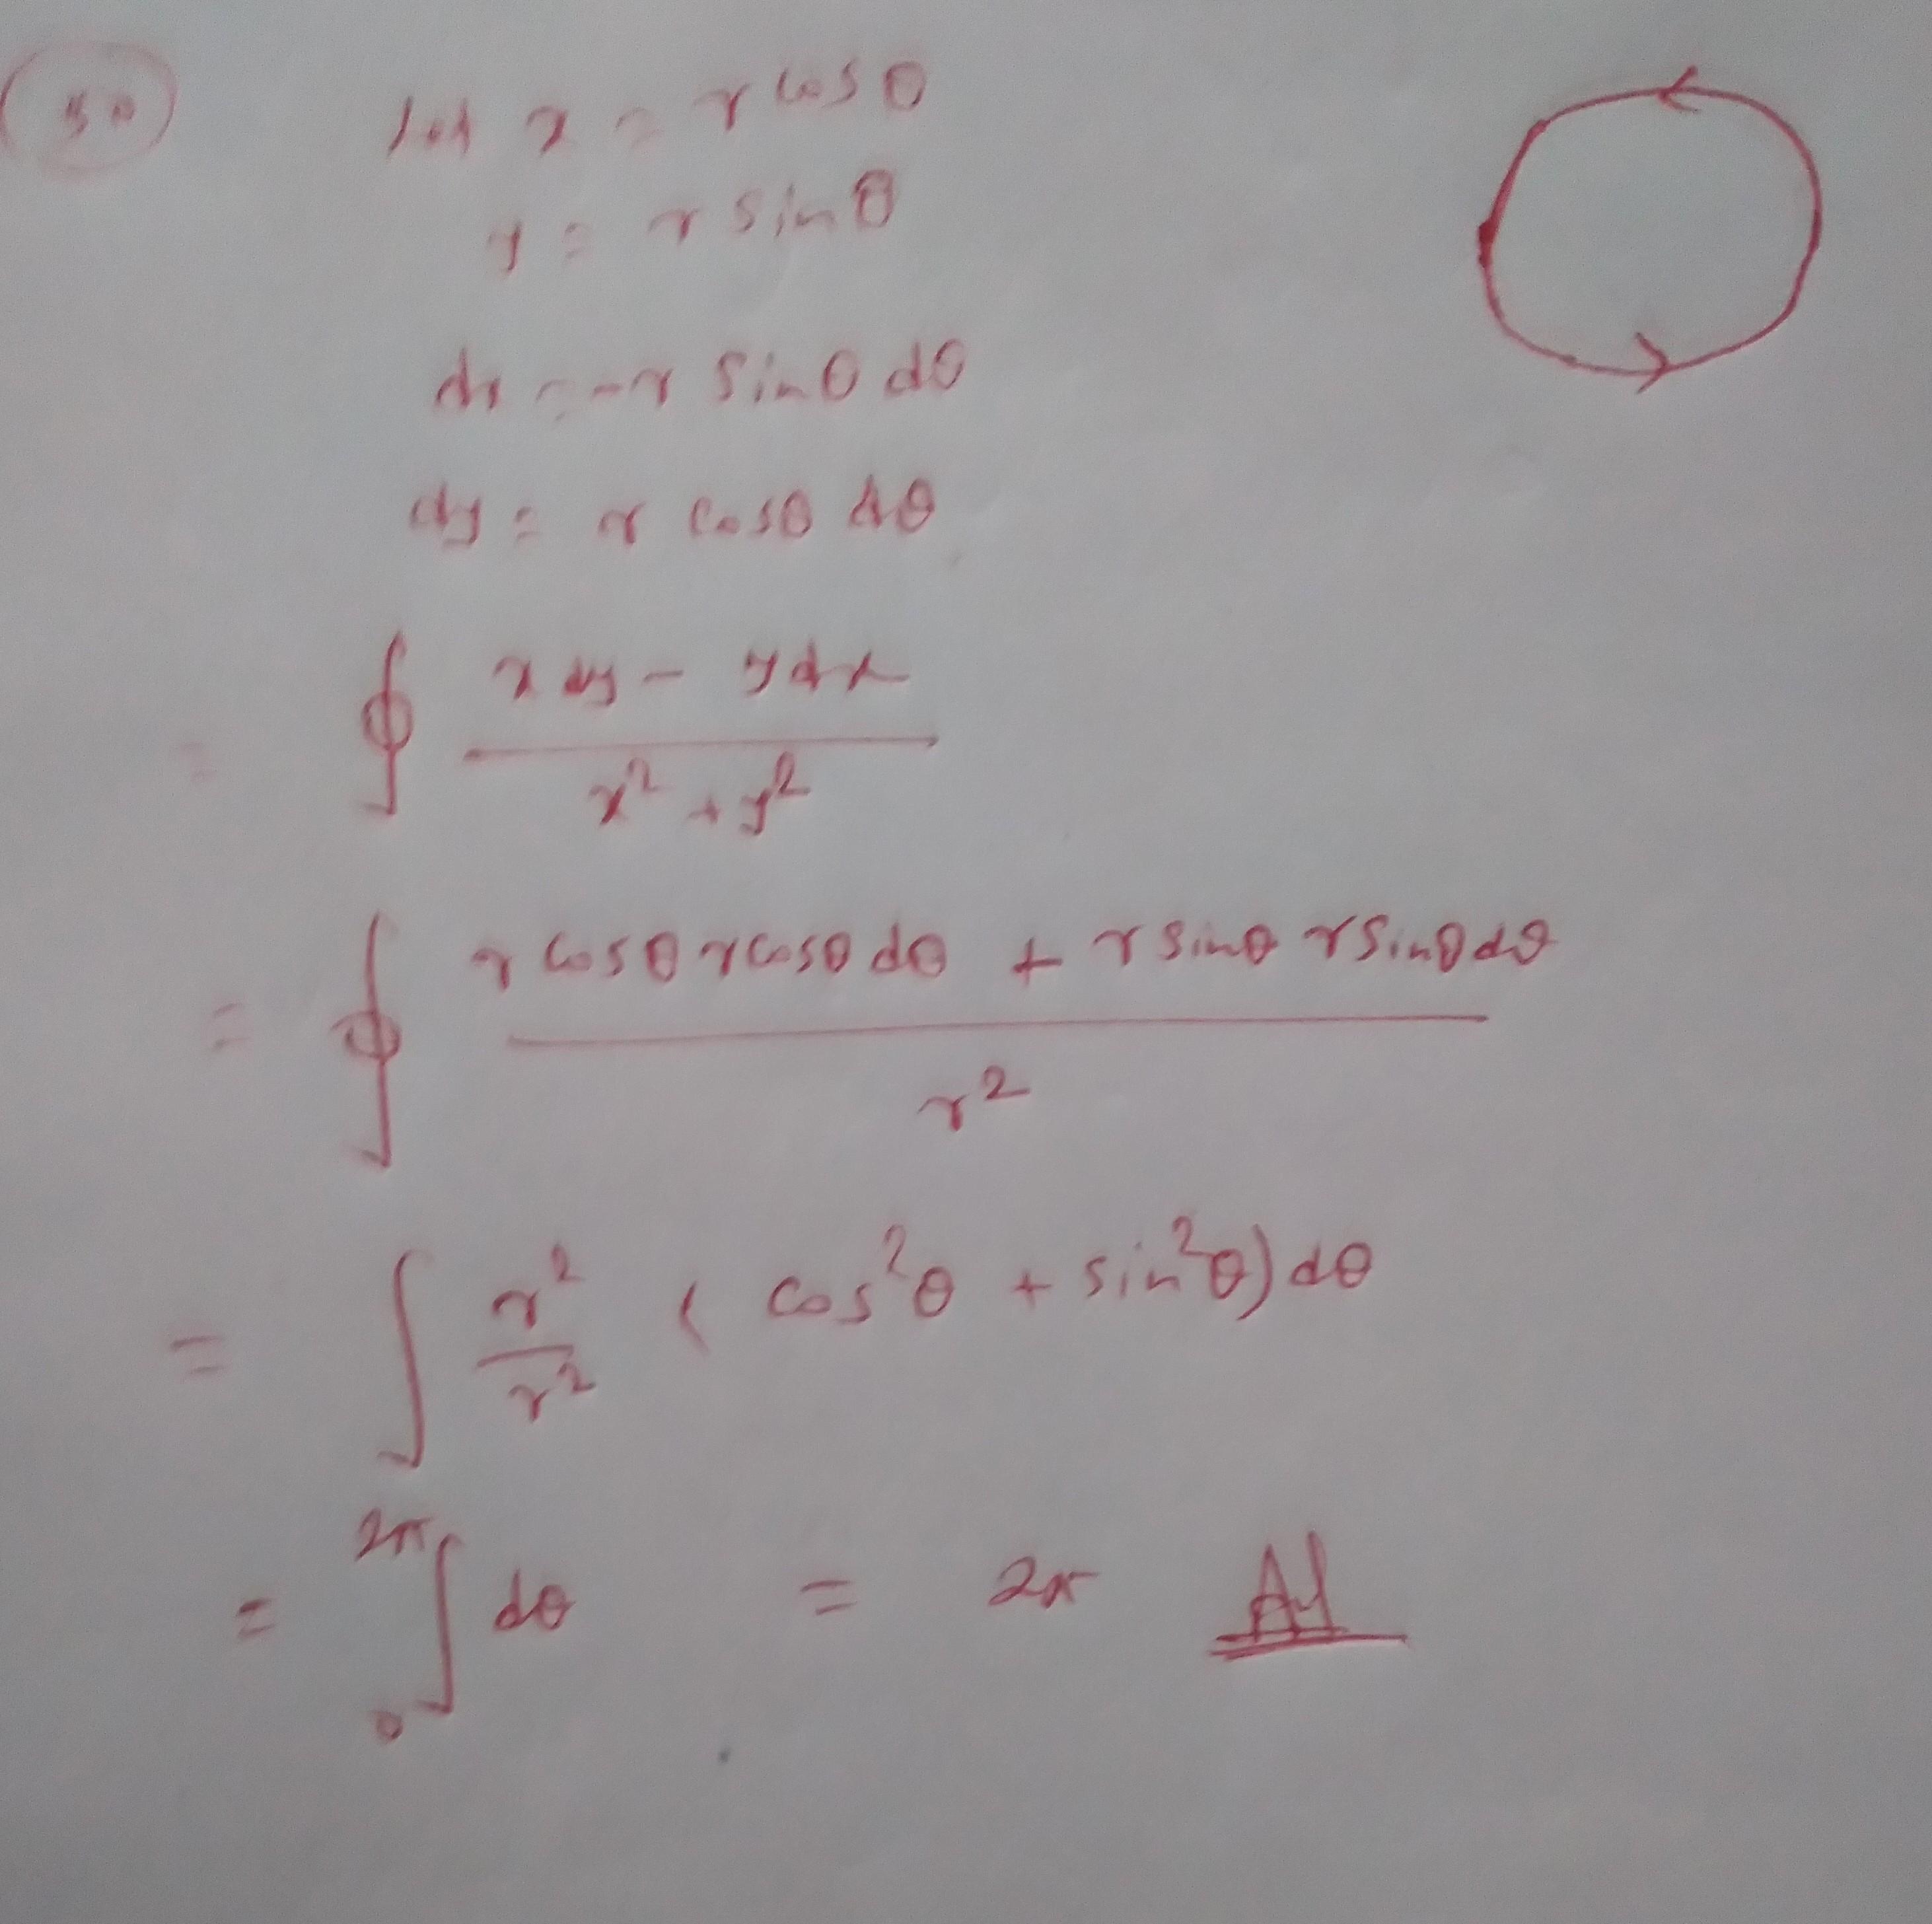 let x = r cosθ
y = r sinθ
dx = -r sinθ dθ
dy = r cosθ dθ
= ∮ (x dy - y dx) / (x² + y²)
= ∮ (r cosθ r cosθ dθ + r sinθ r sinθ dθ) / r²
= ∫ r²/r² (cos²θ + sin²θ) dθ
= ∫₀^2π dθ = 2π